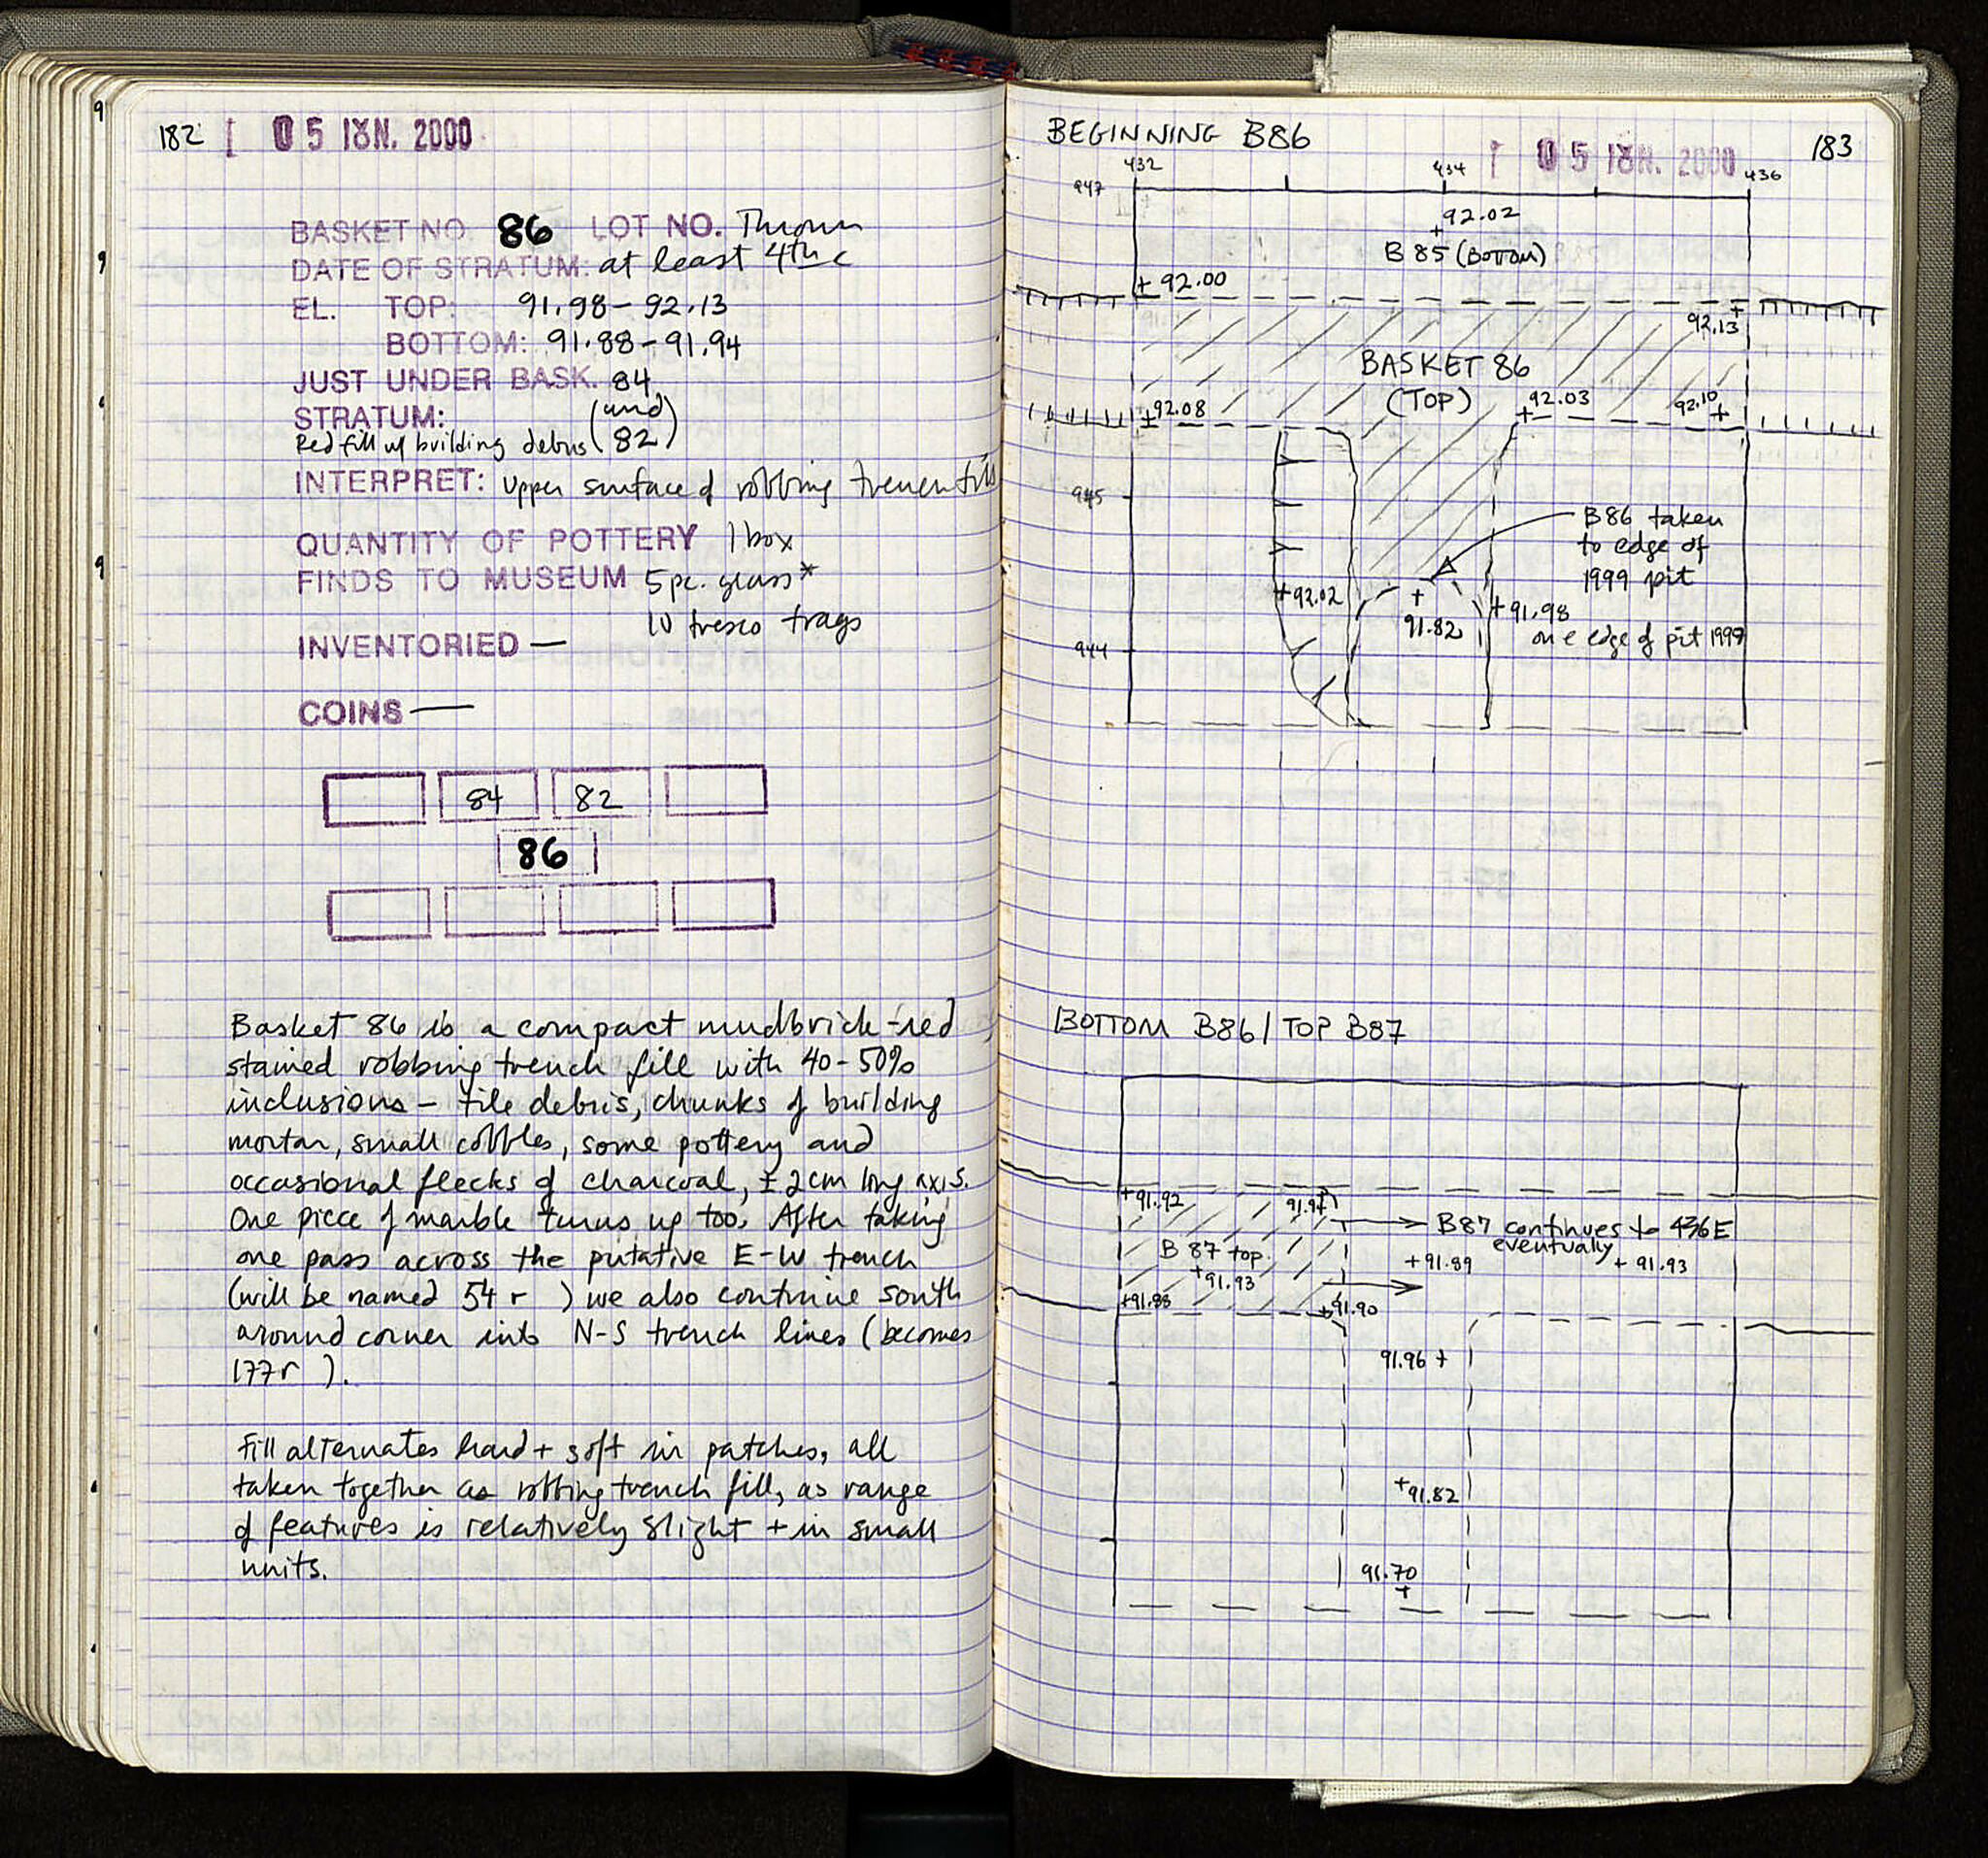 182 [ 05 ΙΟΥΝ. 2000
BASKET NO. 86 LOT NO. Thrown
DATE OF STRATUM: at least 4th c
EL. TOP: 91.98 - 92.13
BOTTOM: 91.88 - 91.94
JUST UNDER BASK. 84
STRATUM: (and
Red fill w/ building debris 82)
INTERPRET: Upper surface of robbing trench fills
QUANTITY OF POTTERY 1 box
FINDS TO MUSEUM 5 pc. glass*
10 fresco frags
INVENTORIED —
COINS —
84 82
86
Basket 86 is a compact mudbrick-red
stained robbing trench fill with 40-50%
inclusions - tile debris, chunks of building
mortar, small cobbles, some pottery and
occasional flecks of charcoal, ± 2cm long axis.
One piece of marble turns up too. After taking
one pass across the putative E-W trench
(will be named 54 r ) we also continue south
around corner into N-S trench lines (becomes
177 r ).
Fill alternates hard + soft in patches, all
taken together as robbing trench fill, as range
of features is relatively slight + in small
units.
BEGINNING B86
[ 05 ΙΟΥΝ. 2000
183
432 434 436
947
+92.02
B 85 (BOTTOM)
+ 92.00
92.13 +
BASKET 86
(TOP)
+92.08
+92.03
92.10 +
945
B86 taken
to edge of
1999 pit
+92.02
+ 91.82
+91.98
on edge of pit 1999
944
BOTTOM B86 / TOP B87
+91.92
91.94
B87 continues to 436E
eventually
B 87 top.
+91.93
+91.89
+ 91.93
+91.88
+91.90
91.96 +
+91.82
91.70
+